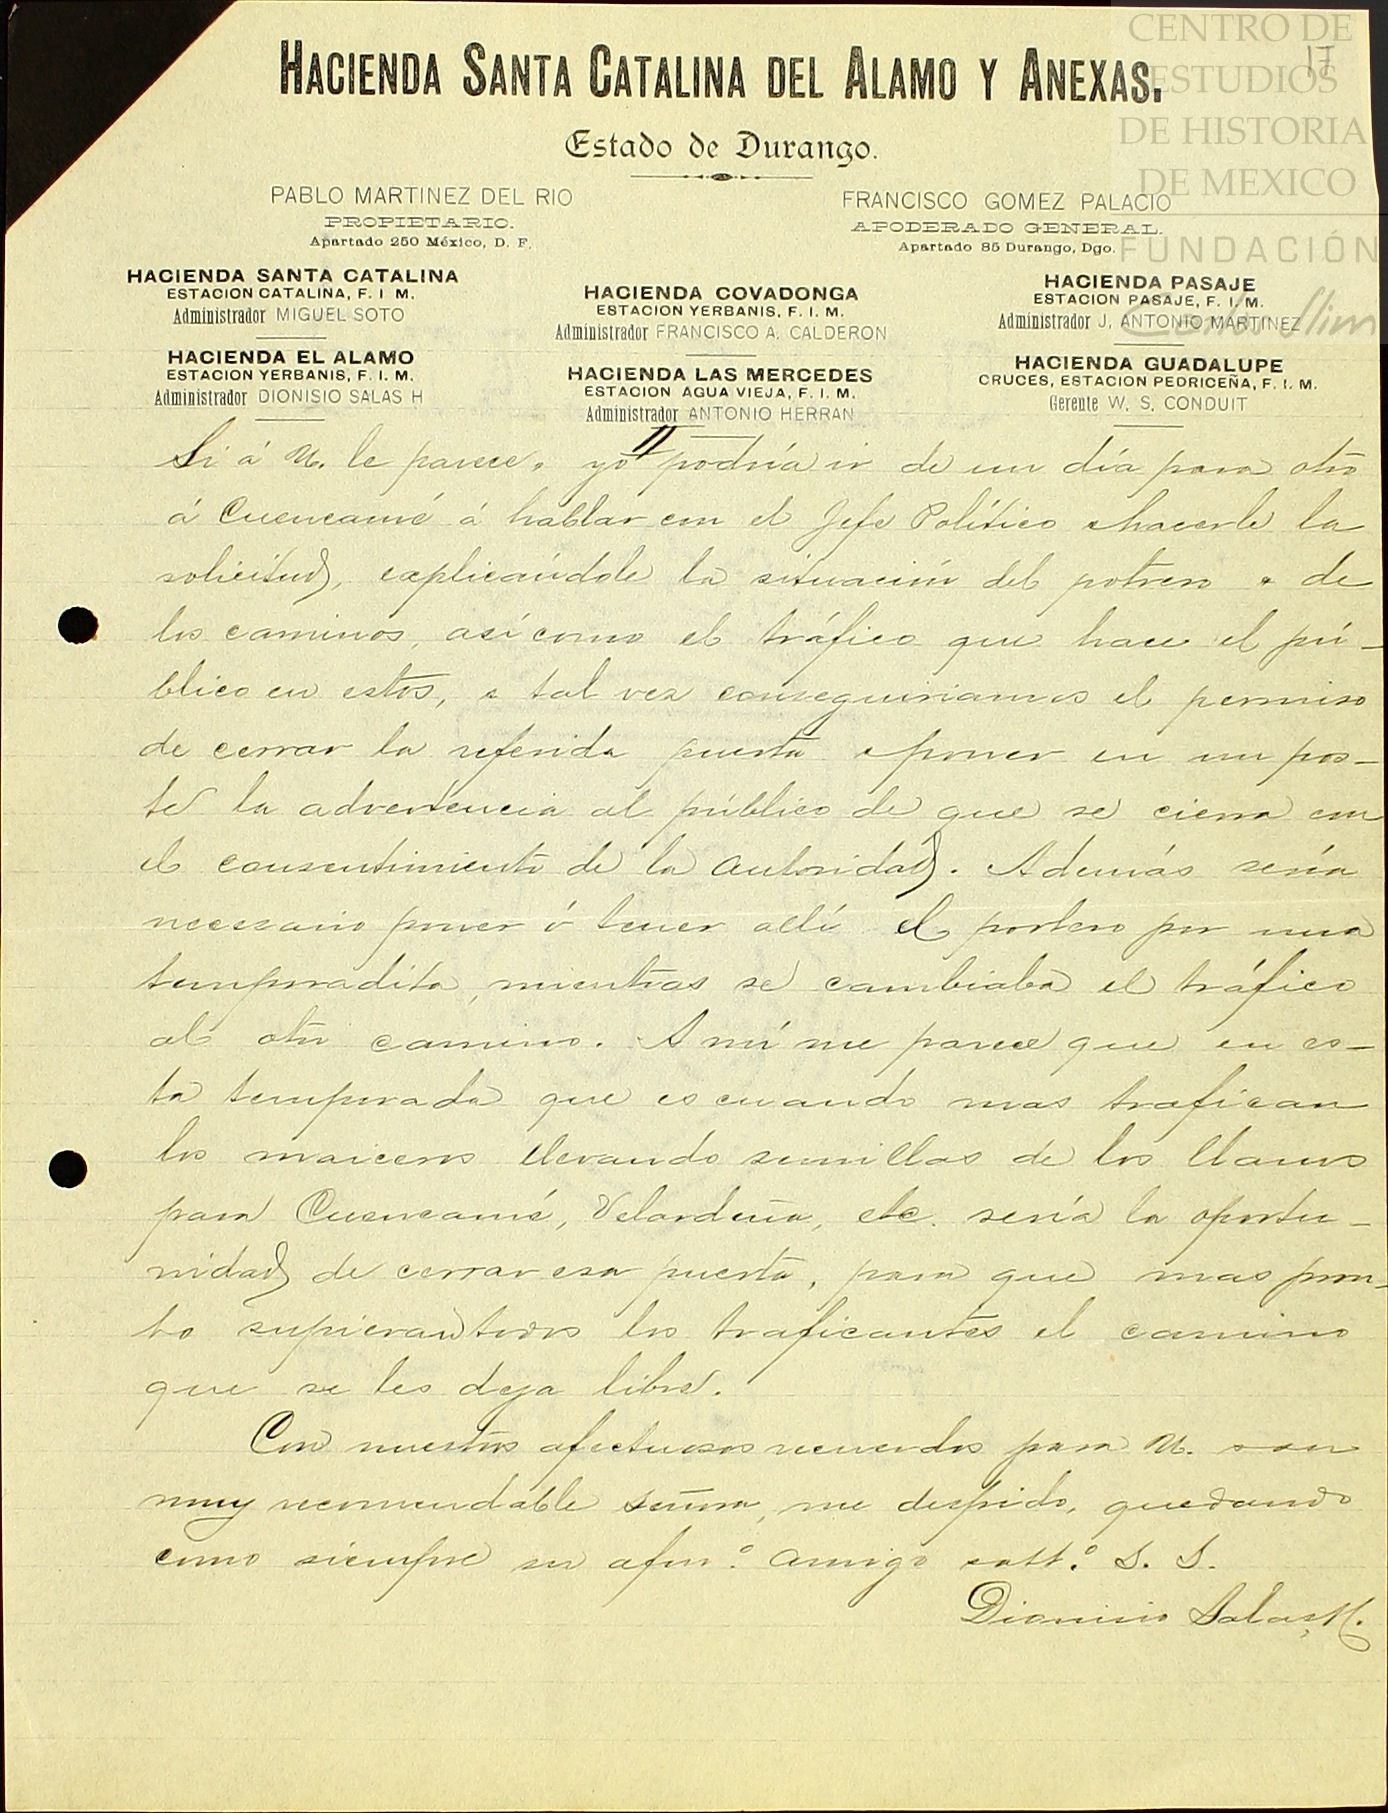 CENTRO DE
ESTUDIOS
DE HISTORIA
DE MEXICO
FUNDACIÓN
Carlos Slim
17
HACIENDA SANTA CATALINA DEL ALAMO Y ANEXAS.
Estado de Durango.
PABLO MARTINEZ DEL RIO
PROPIETARIO.
Apartado 250 México, D. F.
FRANCISCO GOMEZ PALACIO
APODERADO GENERAL.
Apartado 85 Durango, Dgo.
HACIENDA SANTA CATALINA
ESTACION CATALINA, F. I M.
Administrador MIGUEL SOTO
HACIENDA EL ALAMO
ESTACION YERBANIS, F. I. M.
Administrador DIONISIO SALAS H
HACIENDA COVADONGA
ESTACION YERBANIS, F. I. M.
Administrador FRANCISCO A. CALDERON
HACIENDA LAS MERCEDES
ESTACION AGUA VIEJA, F. I. M.
Administrador ANTONIO HERRAN
HACIENDA PASAJE
ESTACION PASAJE, F. I. M.
Administrador J. ANTONIO MARTINEZ
HACIENDA GUADALUPE
CRUCES, ESTACION PEDRICEÑA, F. I. M.
Gerente W. S. CONDUIT
Si á U. le parece, yo podría ir de un día para otro
á Cuencamé á hablar con el Jefe Político y hacerle la
solicitud, explicándole la situación del potrero y de
los caminos, así como el tráfico que hace el pú-
blico en estos, y tal vez conseguiriamos el permiso
de cerrar la referida puerta y poner en un pos-
te la advertencia al público de que se cierra con
el consentimiento de la autoridad. Además sería
necesario poner ó tener allí el portero por una
temporadita, mientras se cambiaba el tráfico
al otro camino. A mí me parece que en es-
ta temporada que es cuando mas trafican
los maiceros llevando semillas de los llanos
para Cuencamé, Velardeña, etc. sería la oportu-
nidad de cerrar esa puerta, para que mas pron-
to supieran todos los traficantes el camino
que se les deja libre.
Con nuestros afectuosos recuerdos para U. y su
muy recomendable señora, me despido, quedando
como siempre su afmo. amigo y att.º S. S.
Dionisio Salas H.